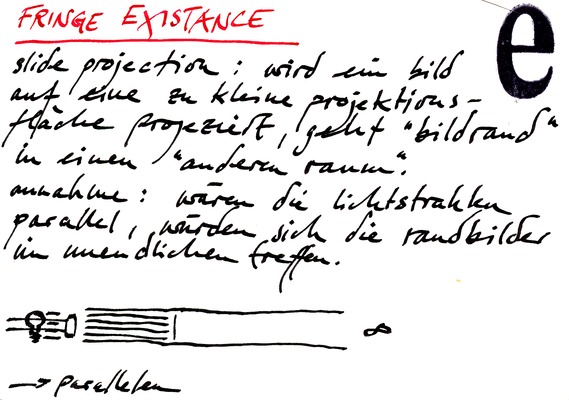 FRINGE EXISTANCE
e
slide projection : wird ein bild
auf eine zu kleine projektions-
fläche projeziert, geht "bildrand"
in einen "anderen raum".
annahme : wären die lichtstrahlen
parallel, würden sich die randbilder
im unendlichen treffen.
∞
→ parallelen